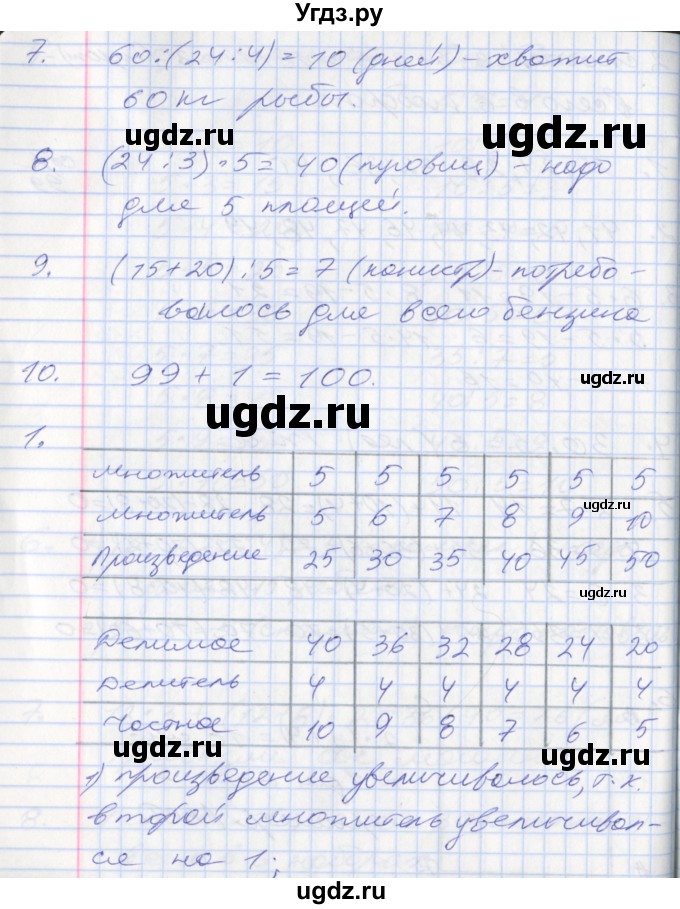 Угдз.ру
7. 60:(24:4)=10 (дней) - хватит
60 кг рыбы.
ugdz.ru
ugdz.ru
8. (24:3)·5=40 (пуговиц) - надо
для 5 плащей.
9. (15+20):5=7 (канистр)- потребо-
валось для всего бензина
10. 99+1=100.
ugdz.ru
ugdz.ru
1.
множитель 5 5 5 5 5 5
множитель 5 6 7 8 9 10
ugdz.ru
Произведение 25 30 35 40 45 50
ugdz.ru
Делимое 40 36 32 28 24 20
Делитель 4 4 4 4 4 4
ugdz.ru
Частное 10 9 8 7 6 5
ugdz.ru
1) произведение увеличивалось, т.к.
второй множитель увеличивал-
ся на 1;
ugdz.ru
ugdz.ru